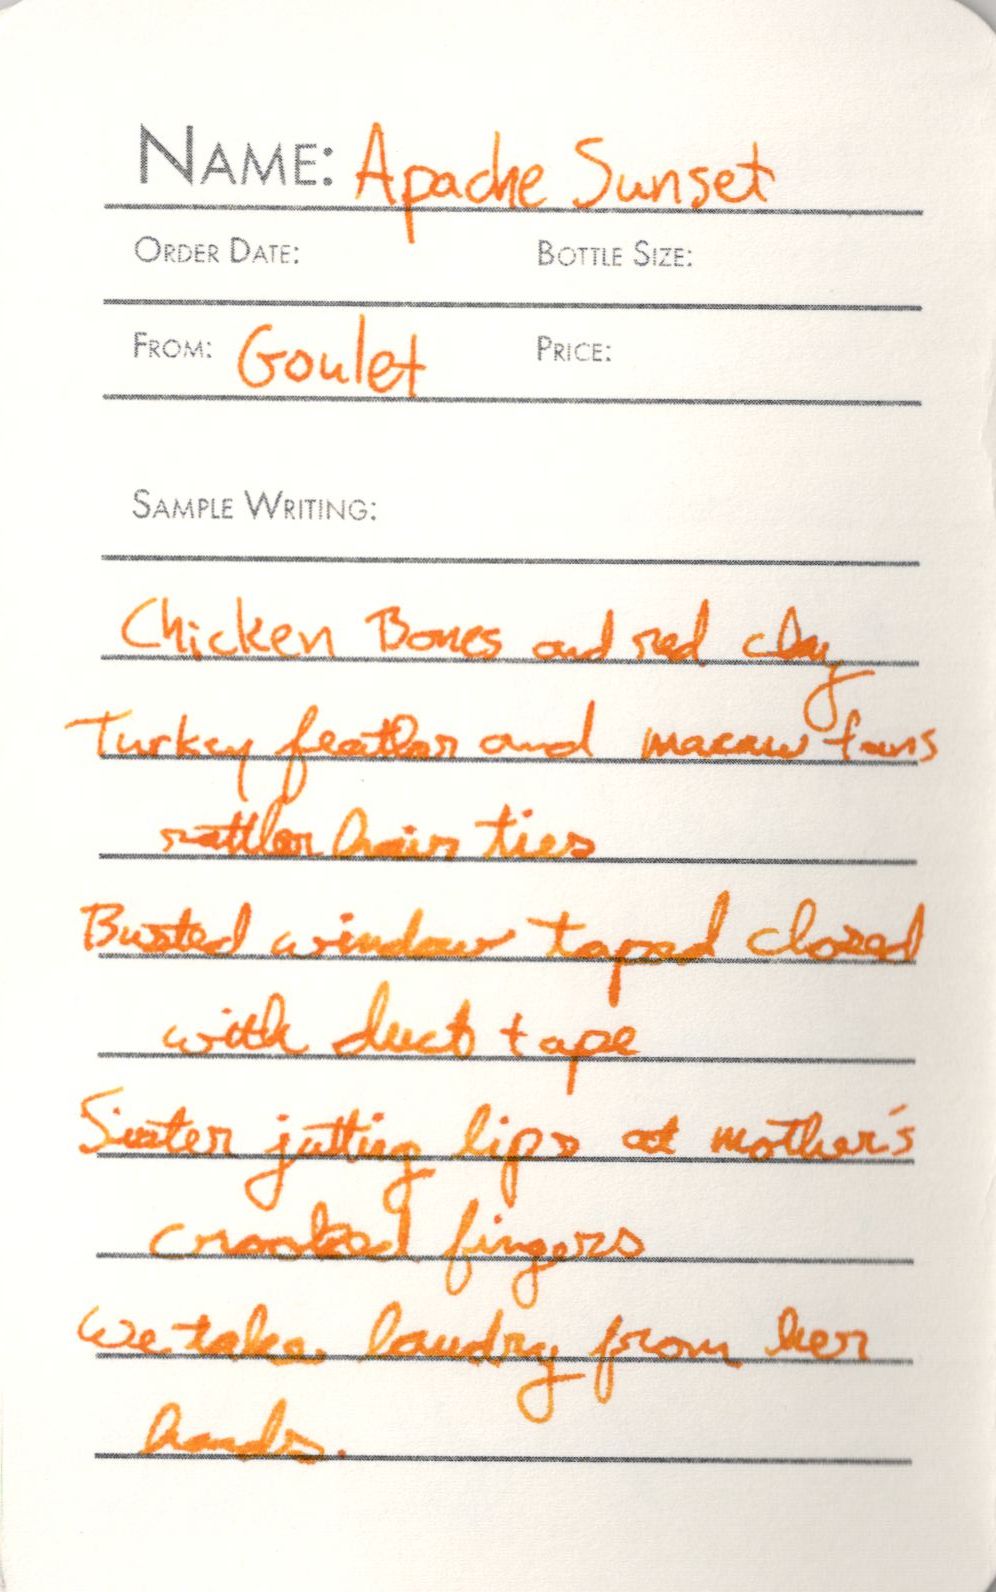 NAME: Apache Sunset
ORDER DATE: BOTTLE SIZE:
FROM: Goulet PRICE:
SAMPLE WRITING:
Chicken Bones and red clay
Turkey feather and macaw fans
rattler hair ties
Busted window taped closed
with duct tape
Sister jutting lips at mother's
crooked fingers
We take laundry from her
hands.